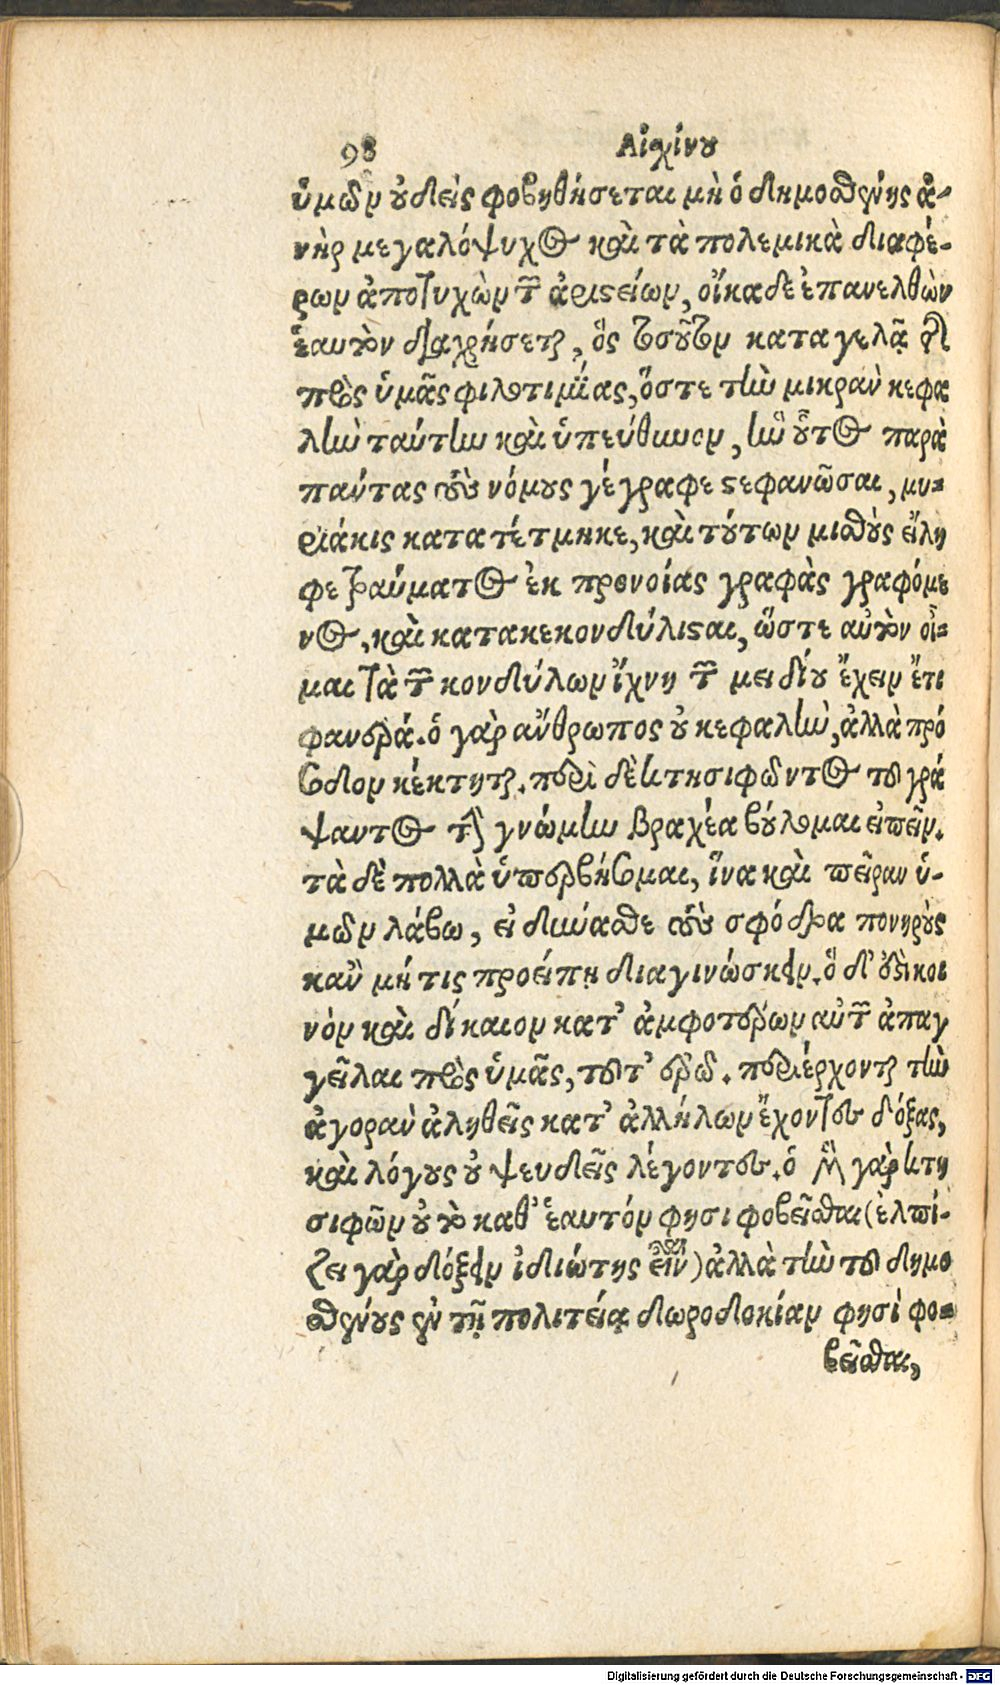 98 Αἰσχίνου
ὑμῶν οὐδεὶς φοβηθήσεται μὴ ὁ δημοσθένης ἀ-
νὴρ μεγαλόψυχος καὶ τὰ πολεμικὰ διαφέ-
ρων ἀποτυχὼν τῶν ἀριστείων, οἴκαδε ἐπανελθὼν
ἑαυτὸν διαχρήσεται, ὃς τοσοῦτον καταγελᾷ τῆς
πρὸς ὑμᾶς φιλοτιμίας, ὅστε τὴν μικρὰν κεφα
λὴν ταύτην καὶ ὑπεύθυνον, ἣν οὗτος παρὰ
πάντας τοὺς νόμους γέγραφε στεφανῶσαι, μυ-
ριάκις κατατέτμηκε, καὶ τούτων μισθοὺς εἴλη
φε τραύματος ἐκ προνοίας γραφὰς γραφόμε
νος, καὶ κατακεκονδύλισται, ὥστε αὐτὸν οἶ-
μαι τὰ τῶν κονδύλων ἴχνη τῶν μειδίου ἔχειν ἔτι
φανερά. ὁ γὰρ ἄνθρωπος οὐ κεφαλὴν, ἀλλὰ πρό
σοδον κέκτηται. περὶ δὲ κτησιφῶντος τοῦ γρά
ψαντος τὴν γνώμην βραχέα βούλομαι εἰπεῖν.
τὰ δὲ πολλὰ ὑπερβήσομαι, ἵνα καὶ πεῖραν ὑ-
μῶν λάβω, εἰ δύνασθε τοὺς σφόδρα πονηροὺς
κἂν μή τις προείπῃ διαγινώσκειν. ὃ δ' ἐστὶ κοι
νὸν καὶ δίκαιον κατ' ἀμφοτέρων αὐτῶν ἀπαγ
γεῖλαι πρὸς ὑμᾶς, τοῦτ' ἐρῶ. περιέρχονται τὴν
ἀγορὰν ἀληθεῖς κατ' ἀλλήλων ἔχοντες δόξας,
καὶ λόγους οὐ ψευδεῖς λέγοντες. ὁ μὲν γὰρ κτη
σιφῶν οὐ τὸ καθ' ἑαυτόν φησι φοβεῖσθαι (ἐλπί-
ζει γὰρ δόξειν ἰδιώτης εἶναι) ἀλλὰ τὴν τοῦ δημο
σθένους ἐν τῇ πολιτείᾳ δωροδοκίαν φησὶ φο-
βεῖσθαι,
Digitalisierung gefördert durch die Deutsche Forschungsgemeinschaft - DFG